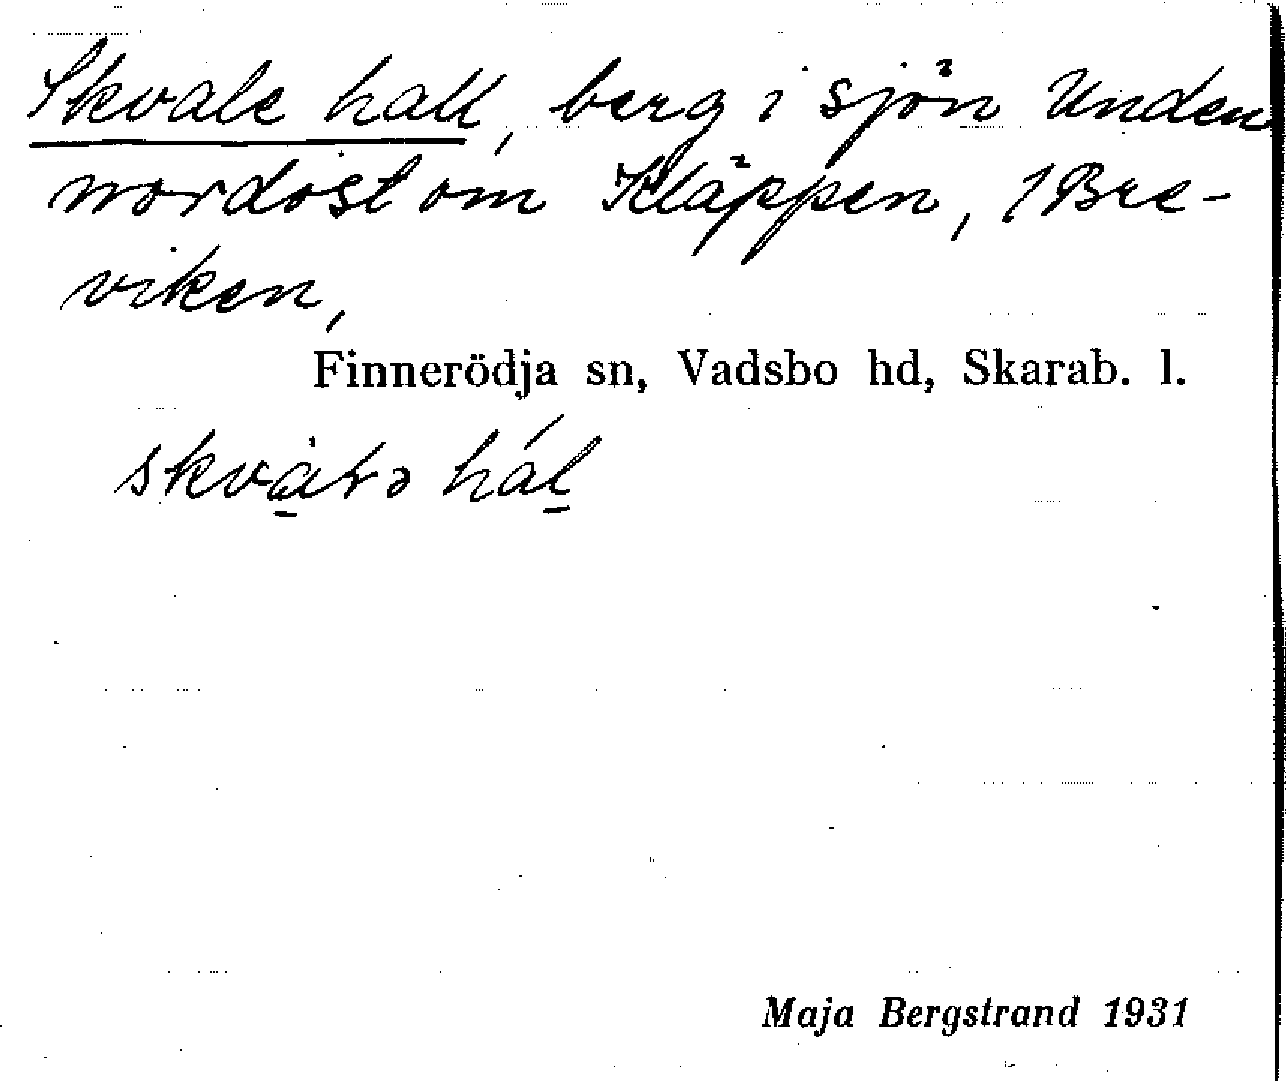 Skvale hall, berg i sjön Unden
nordost om Kläppen, 1 Bre-
viken,
Finnerödja sn, Vadsbo hd, Skarab. l.
Maja Bergstrand 1931